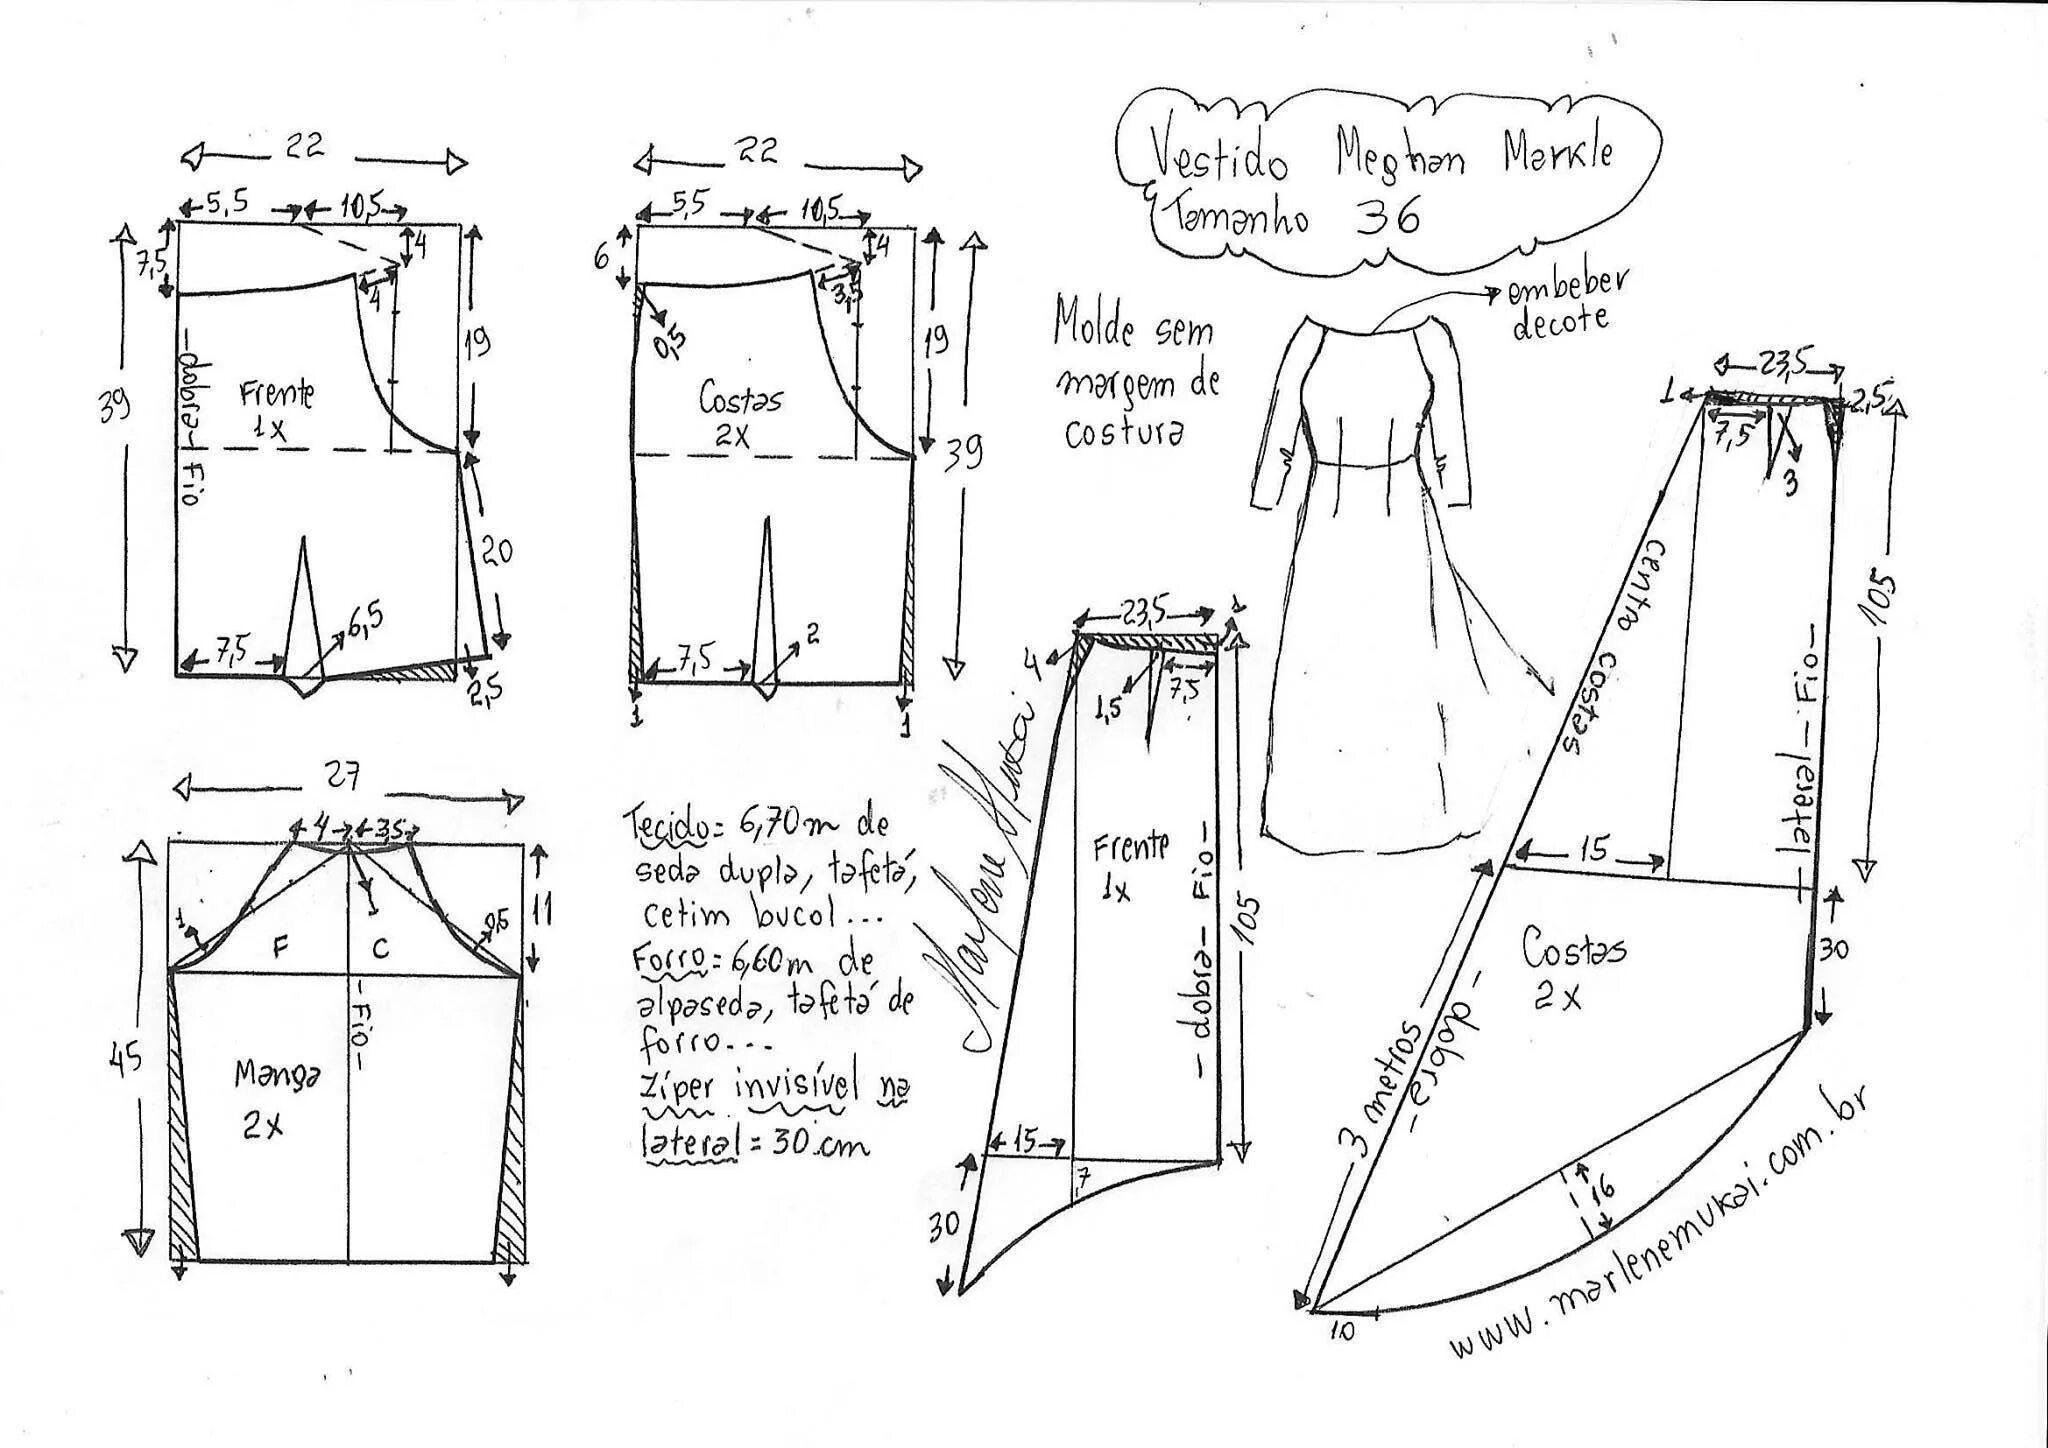 Vestido Meghan Markle
Tamanho 36
22
5,5
10,5
7,5
4
4
39
19
-dobra-
Fio
Frente
1x
20
7,5
6,5
2,5
22
5,5
10,5
6
4
3,5
0,5
19
39
Costas
2x
7,5
2
1
1
Molde sem
margem de
costura
embeber
decote
27
4
3,5
11
1
1
0,5
F
C
-Fio-
45
Manga
2x
Tecido= 6,70m de
seda dupla, tafetá,
cetim bucol...
Forro= 6,60m de
alpaseda, tafetá de
forro...
zíper invisível na
lateral = 30 cm
Marlene Mukai
23,5
1
4
1,5
7,5
Frente
1x
-dobra-Fio-
105
15
7
30
23,5
1
2,5
7,5
3
centro costas
-lateral-Fio-
105
15
30
Costas
2x
3 metros
-dobra-
16
10
www.marlenemukai.com.br